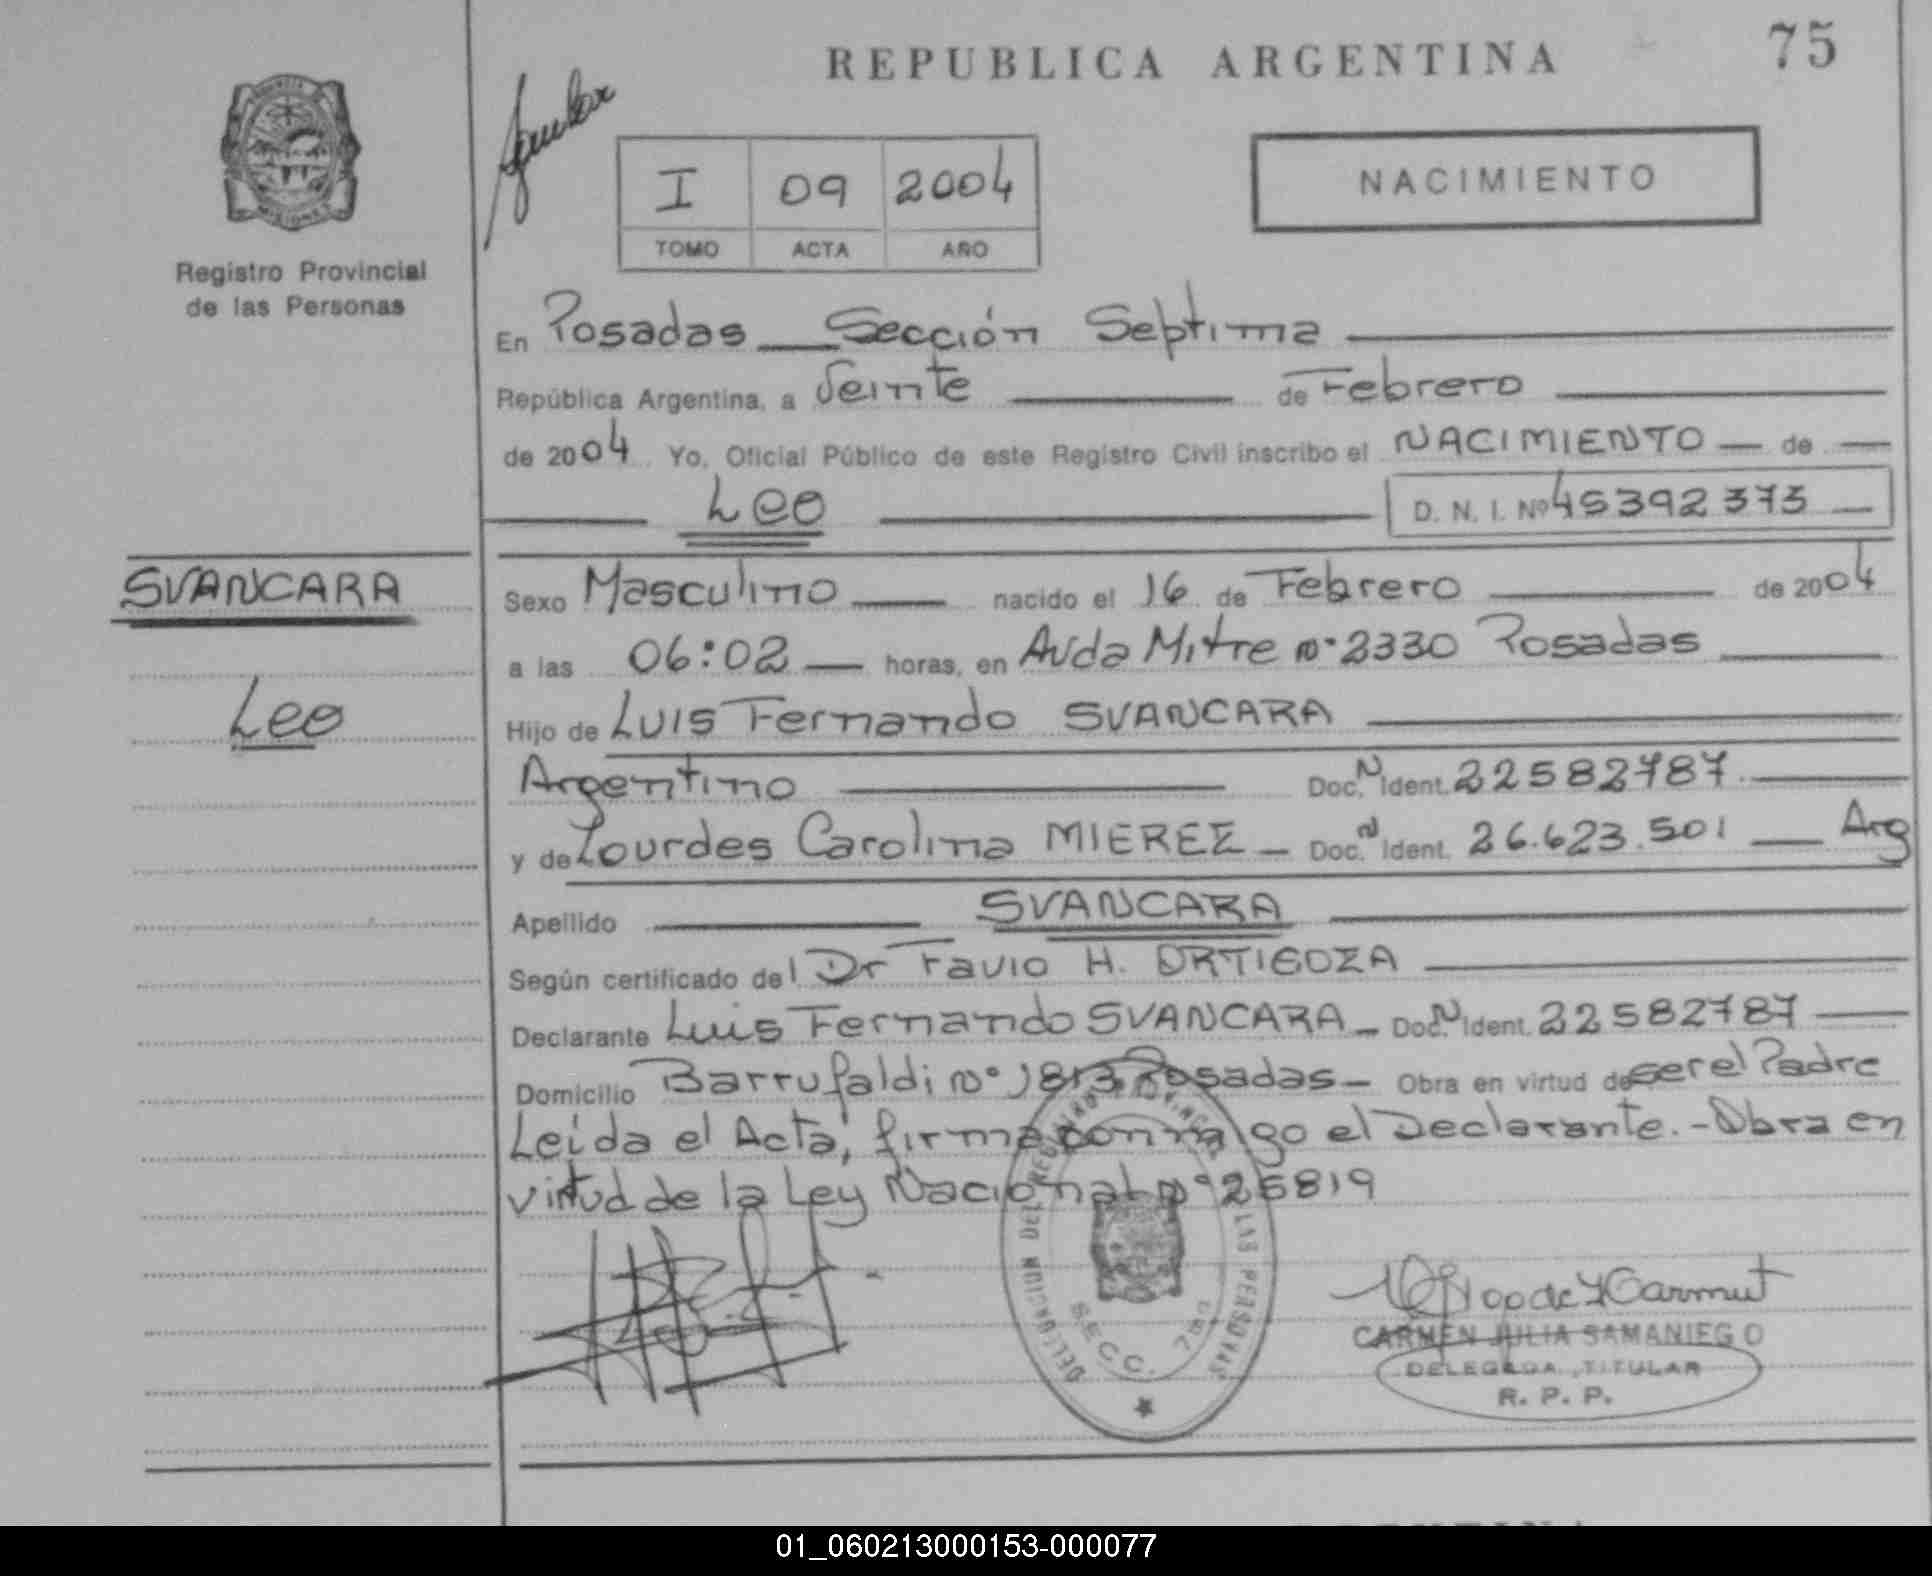 REPUBLICA ARGENTINA
75
I 09 2004
TOMO ACTA AÑO
NACIMIENTO
MISIONES
Registro Provincial
de las Personas
En Posadas Sección Septima
República Argentina, a Veinte de Febrero
de 2004 Yo, Oficial Público de este Registro Civil inscribo el NACIMIENTO de
Leo D. N. I. Nº 45392373
SVANCARA
Leo
Sexo Masculino nacido el 16 de Febrero de 2004
a las 06:02 horas, en Avda Mitre nº 2330 Posadas
Hijo de Luis Fernando SVANCARA
Argentino Doc. N Ident. 22582787
y de Lourdes Carolina MIEREZ Doc. N Ident. 26.623.501 Arg
Apellido SVANCARA
Según certificado del Dr Favio H. ORTIGOZA
Declarante Luis Fernando SVANCARA Doc. N Ident. 22582787
Domicilio Barrufaldi Nº 1813 Posadas Obra en virtud de ser el Padre
Leída el Acta, firma conmigo el Declarante.- Obra en
virtud de la Ley Nacional nº 25819
DELEGACION DEL REGISTRO PROVINCIAL DE LAS PERSONAS
SECC. 7ma
CARMEN JULIA SAMANIEGO
DELEGADA TITULAR
R. P. P.
01_060213000153-000077